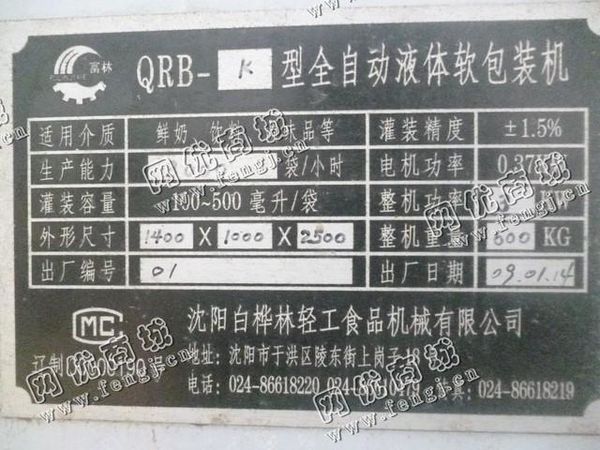 富林
QRB-K型全自动液体软包装机
适用介质 鲜奶、饮料、调味品等 灌装精度 ±1.5%
生产能力 袋/小时 电机功率 0.37
灌装容量 100~500 毫升/袋 整机功率 KW
外形尺寸 1400 X 1000 X 2500 整机重量 600 KG
出厂编号 01 出厂日期 09.01.14
MC 沈阳白桦林轻工食品机械有限公司
辽制 号 地址：沈阳市于洪区陵东街上岗子18
电话：024-86618220 传真：024-86618219
网优商城
www.fengj.com.cn